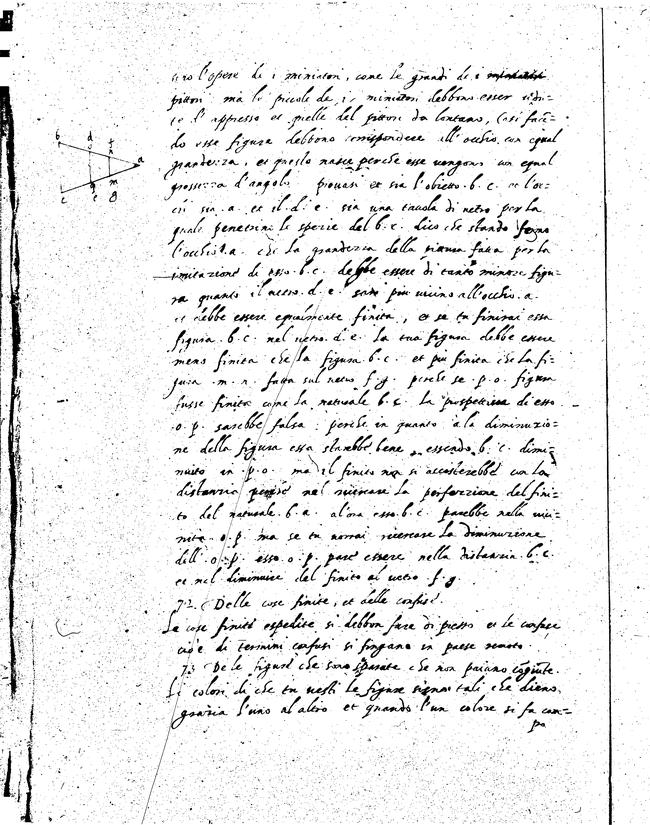 b d t a
c e m g
tiro l'opere de i miniatori, come le grandi de i
pittori ma le piccole de i miniatori debbono esser vedu=
te d'appresso et quelle del pittori da lontano, Così facē=
do esse figura debbono correspondere all'occhio con equal
grandezza, et questo nasce perche esse vengono con equal
grossezza d'angolo provasi et sia l'obietto .b.c. et l'oc=
chi sia .a. et il .d.e. sia una tavola di vetro per la
quale penetrino le spezie del .b.c. dico che stando fermo
l'occhio .a. che la grandezza della pittura fatta per la
imitazione de esso .b.c. debbe essere di tanto minore figu=
ra quanto il vetro .d.e. sara piu vicino all'occhio .a.
et debbe essere egualmente finita, et se tu finirai essa
figura .b.c. nel vetro .d.e. la tua figura debbe essere
meno finita che la figura .b.c. et piu finita che la fi=
gura .m.n. fatta sul vetro .f.g. perche se .p.o. figura
fusse finita come la naturale b.c. la prospettiva di esso
.o.p. sarebbe falsa : perche in quanto alla diminuzio=
ne della figura essa starebbe bene, essendo .b.c. dimi=
nuito in .p.o. ma il finito non si accorderebbe con la
distanzia perche nel ricercare la perfezzione del fini=
to del naturale .b.a. alora esso .b.c. parebbe nella vici=
nita .o.p. ma se tu vorrai ricercare la diminuzione
dell .o.p. esso .o.p. pare essere nella distanzia .b.c.
et nel diminuire del finito al vetro f.g.
72. Delle cose finite, et delle confuse.
Le cose finite et spedite si debbon fare di presso et le confuse
cioè di termini confusi si fingano in paese remoto.
73 De le figure che sono separate che non paiano cogiūte.
Li colori di che tu vesti le figure sieno tali che dieno
grazia l'uno al altro et quando l'un colore si fa cam=
po